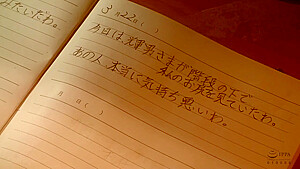 みたいだわ。
3月22日( )
今日は、輝男さまが階段の下で
私のお尻を見ていたわ。
あの人、本当に気持ち悪いわ。
月 日( )